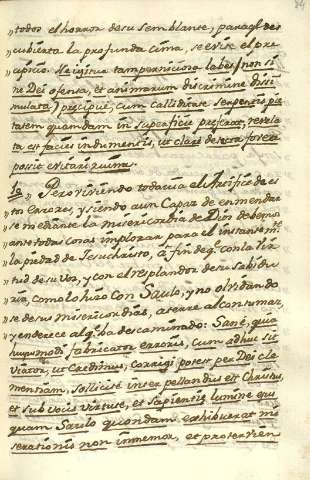 84
„todos el horror de su semblante, para q̃ des
„cubierta la profunda cima, se evite el pre
„cipicio. Ne igitur tam perniciosa labes (non si
„ne Dei ofensa, et animarum discrimine disi
mulata) precipue, cum calliditate serpentis pie
tatem quamdam in superficie preferat, revela
ta est facies indumentis, ut clare detecta fovea
posit evitari ruina.
10 „Pero viviendo todavia el Artifice de es
„tos errores, y siendo aun Capaz de enmendar
„se mediante la misericordia de Dios debemos
„ante todas cosas implorar para el instante m.te
„la piedad de Jesuchristo, à fin de q.e con la vir
„tud de su voz, y con el resplandor de su Sabidu
„ria, como lo hizo con Saulo, y no olvidando
„se de sus misericordias, atraiga al contumaz,
„y enderece al q.e ha descaminado: Sané, quia
huiusmodi fabricator errorum, cum adhuc sit
viator, ut Credimus, corrigi potest per Dei cle
mentiam, Sollicité interpellandus est Christus,
et sub vocis virtute, et sapientię lumine ejus
quam Saulo quondam exhibuerat mi
serationis non inmemor, et protervien